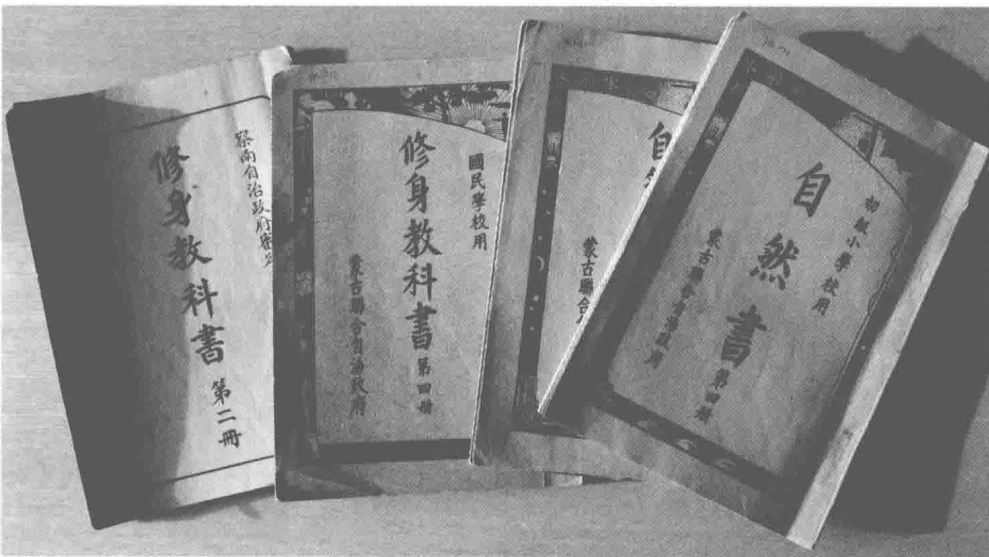 察南自治政府審定
修身教科書 第二冊
國民學校用
修身教科書 第四册
蒙古聯合自治政府
自
蒙古聯合
初級小學校用
自然書 第四册
蒙古聯合自治政府